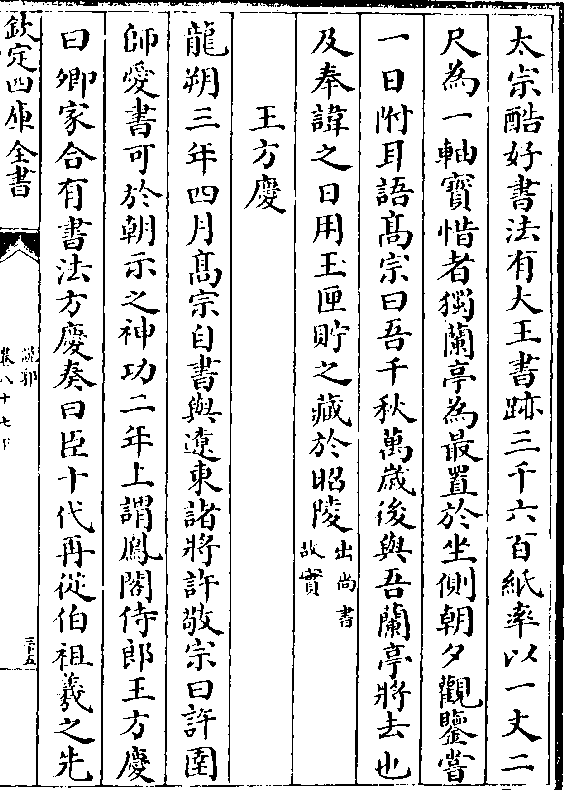 太宗酷好書法有大王書跡三千六百紙率以一丈二
尺為一軸寳惜者獨蘭亭為最置於坐側朝夕觀鑒嘗
一日附耳語髙宗曰吾千秋萬嵗後與吾蘭亭將去也
及奉諱之日用玉匣貯之藏於昭陵出尚書
故實
王方慶
龍朔三年四月髙宗自書與遼東諸將許敬宗曰許圉
師愛書可於朝示之神功二年上謂鳳閣侍郎王方慶
曰卿家合有書法方慶奏曰臣十代再從伯祖羲之先
欽定四庫全書
說郛
卷八十七下
三十五